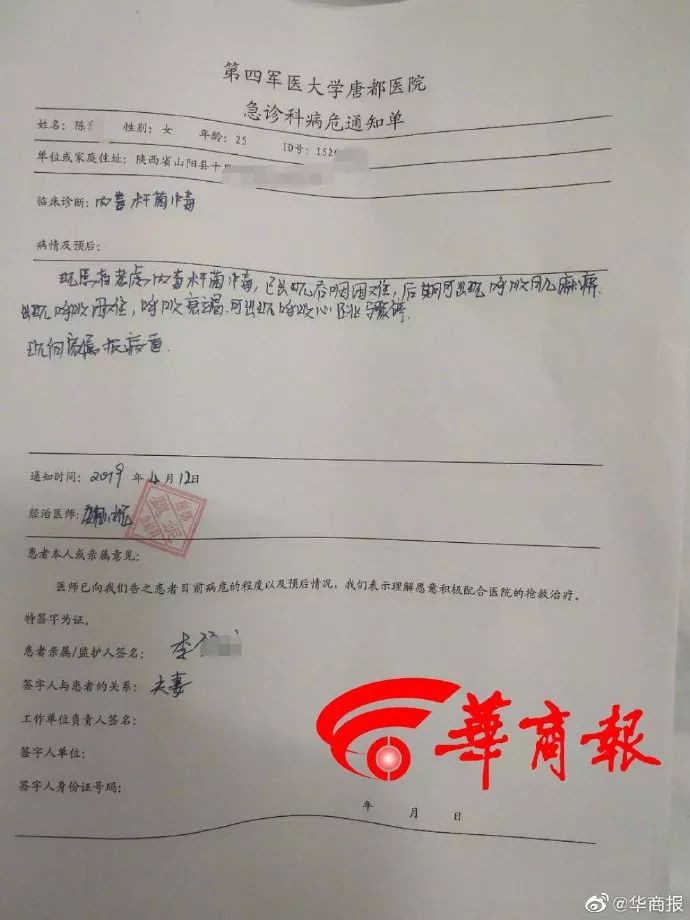 第四军医大学唐都医院
急诊科病危通知单
姓名：陈 性别：女 年龄：25 ID号：152
单位或家庭住址：陕西省山阳县十
临床诊断：肉毒杆菌中毒
病情及预后：
现患者考虑肉毒杆菌中毒，已出现吞咽困难，后期可出现呼吸肌麻痹
出现呼吸困难，呼吸衰竭，可出现呼吸心跳骤停
现向家属报病重
通知时间：2019 年 4 月 12日
经治医师：
患者本人或亲属意见：
医师已向我们告之患者目前病危的程度以及预后情况，我们表示理解愿意积极配合医院的抢救治疗。
特签字为证。
患者亲属/监护人签名：李
签字人与患者的关系：夫妻
工作单位负责人签名：
签字人单位：
签字人身份证号码：
年 月 日
華商報
@华商报